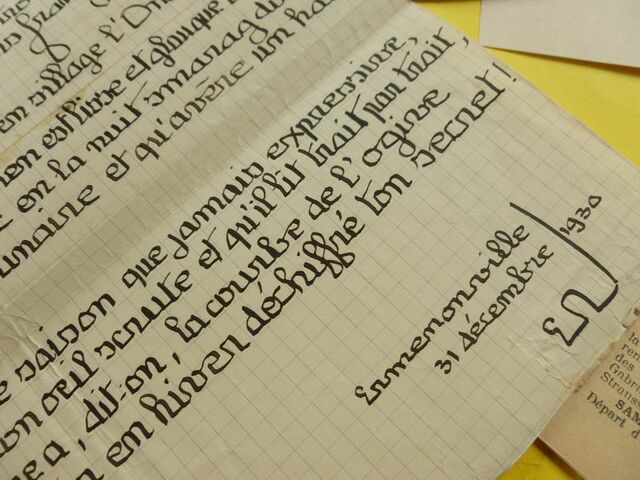 en sillage l'On
est lisse et glauque
en la nuit smaragd
et qu'avère un ha
saison que jamais expressive,
oeil scrute et qu'il lit trait par trait,
a, dit-on, la courbe de l'ogive
en hiver déchiffré ton secret!
Ermenonville
31 décembre 1930
la
ren
des
Gabr
Strauss
SAM
Départ d